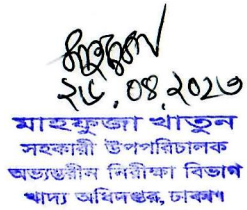 ২৮.০৪.২০২৩
মাহফুজা খাতুন
সহকারী উপপরিচালক
অভ্যন্তরীন নিরীক্ষা বিভাগ
খাদ্য অধিদপ্তর, ঢাকা।